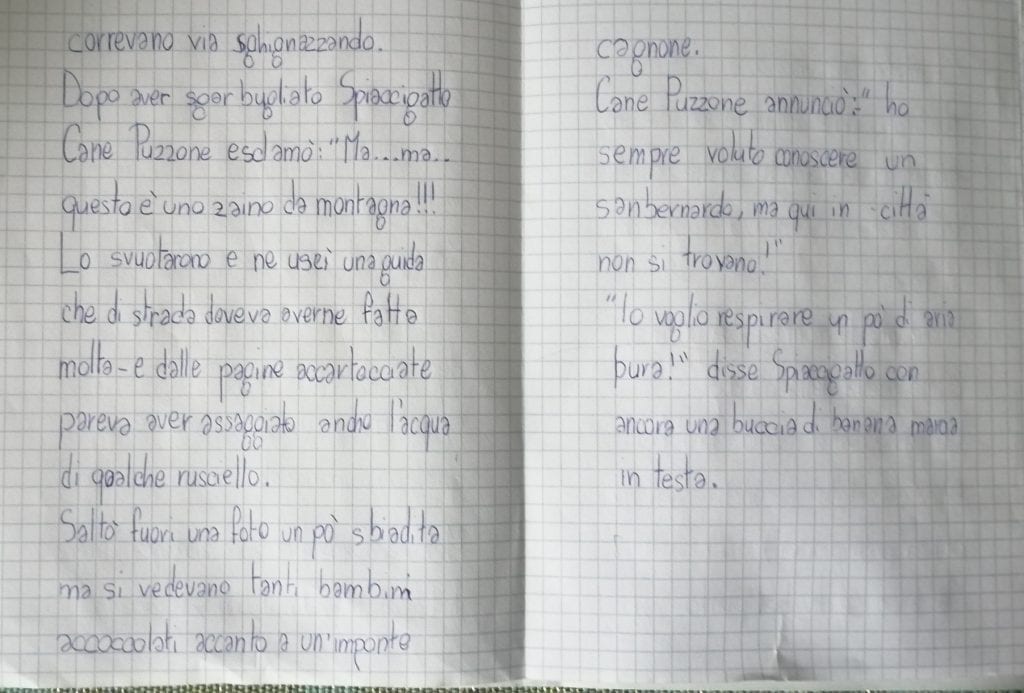 correvano via sghignazzando.
Dopo aver sgarbugliato Spiaccigatto
Cane Puzzone esclamò: "Ma...ma..
questo è uno zaino da montagna!!!
Lo svuotarono e ne uscì una guida
che di strada doveva averne fatta
molta-e dalle pagine accartocciate
pareva aver assaggiato anche l'acqua
di qualche rusciello.
Saltò fuori una foto un pò sbiadita
ma si vedevano tanti bambini
accoccolati accanto a un'imponte
cagnone.
Cane Puzzone annunciò:" ho
sempre voluto conoscere un
sanbernardo, ma qui in città
non si trovano!"
"Io voglio respirare un pò di aria
pura!" disse Spiaccigatto con
ancora una buccia di banana marcia
in testa.